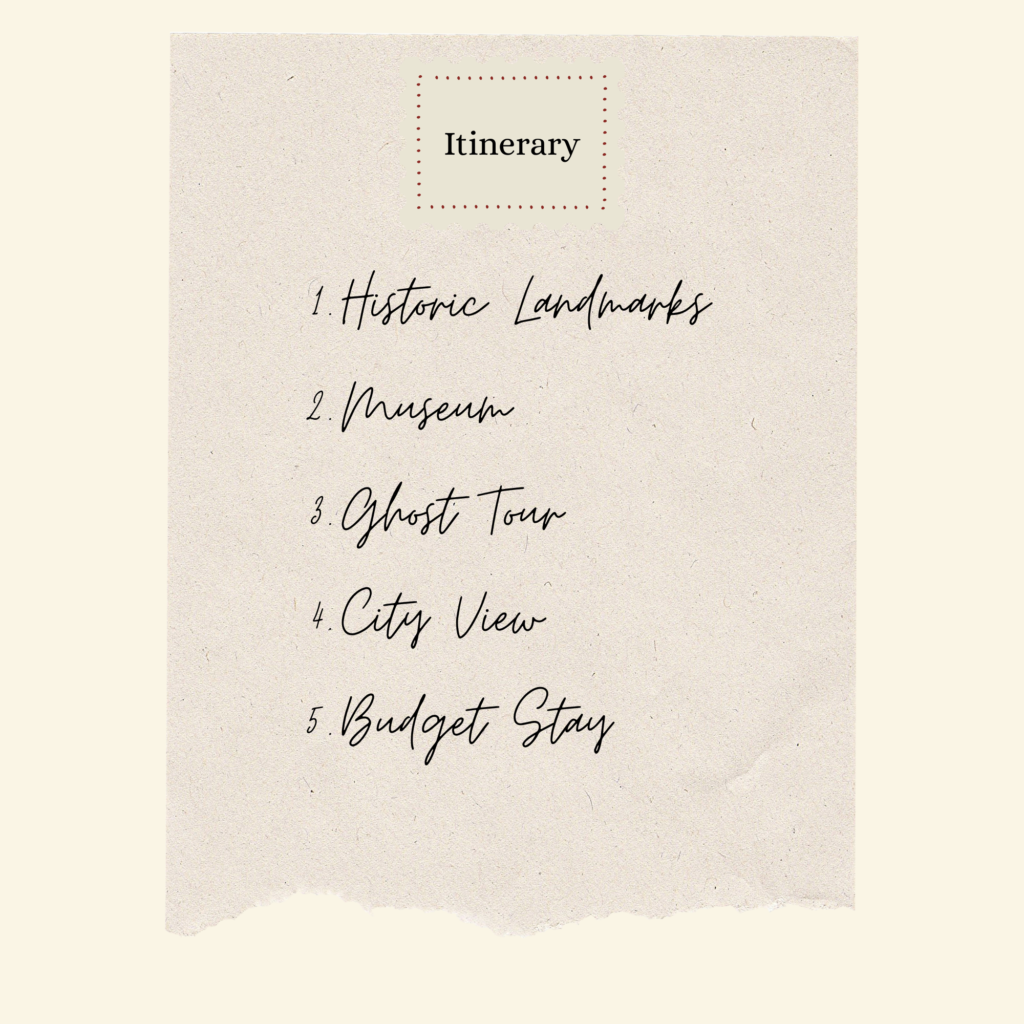 Itinerary
1. Historic Landmarks
2. Museum
3. Ghost Tour
4. City View
5. Budget Stay